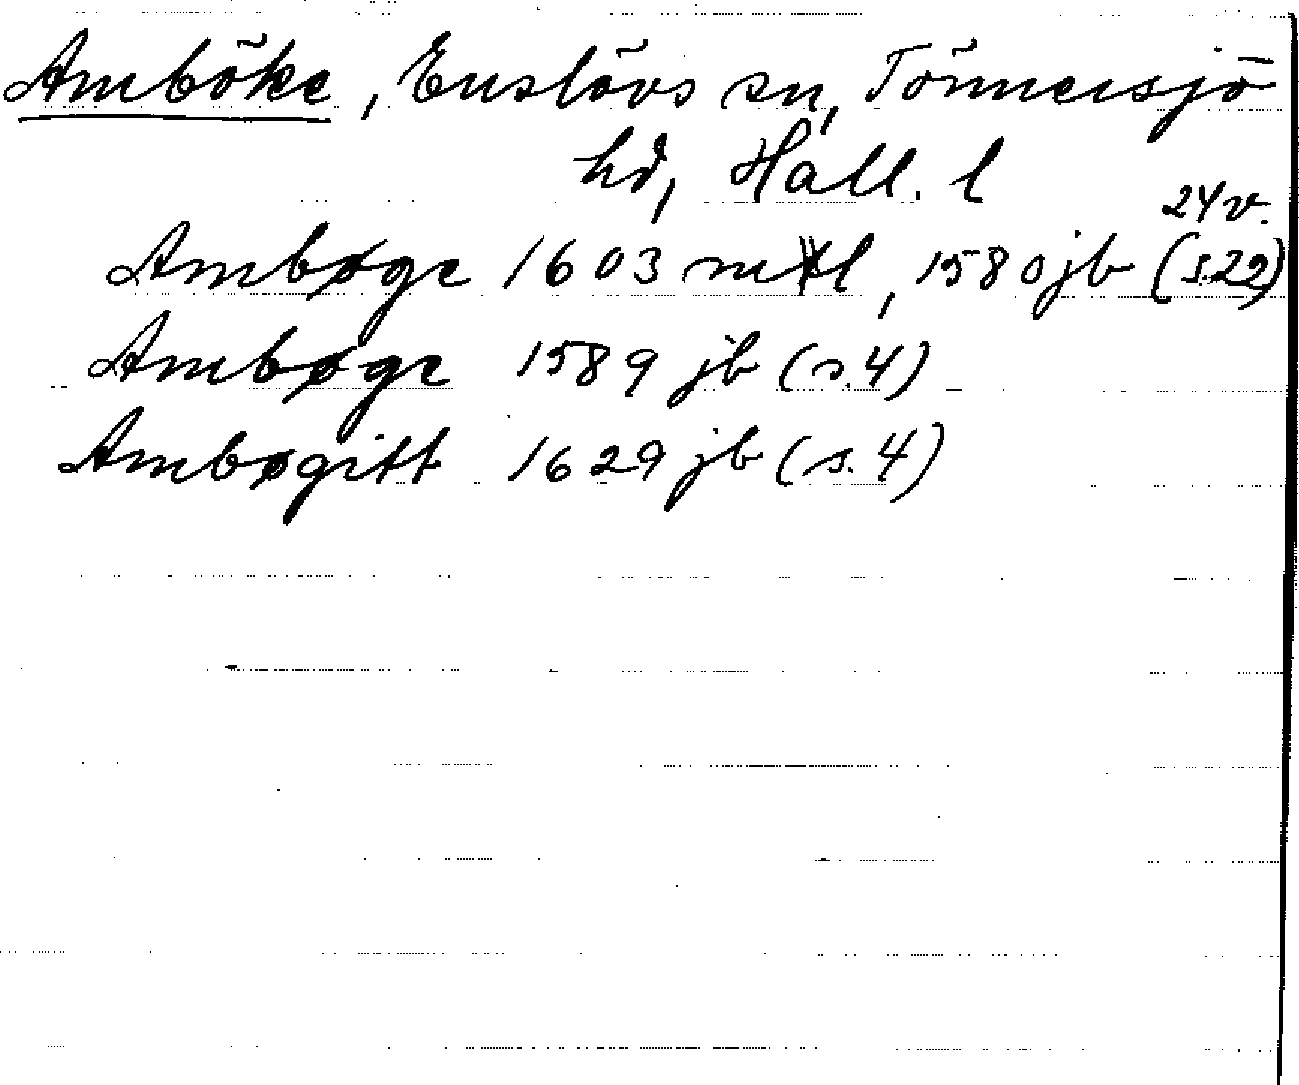 Amböke, Enslövs sn, Tönnersjö
hd, Hall. l
24 v.
Ambøge 1603 mtl, 1580 jb (s.22)
Ambøge 1589 jb (s.4)
Ambøgitt 1629 jb (s.4)